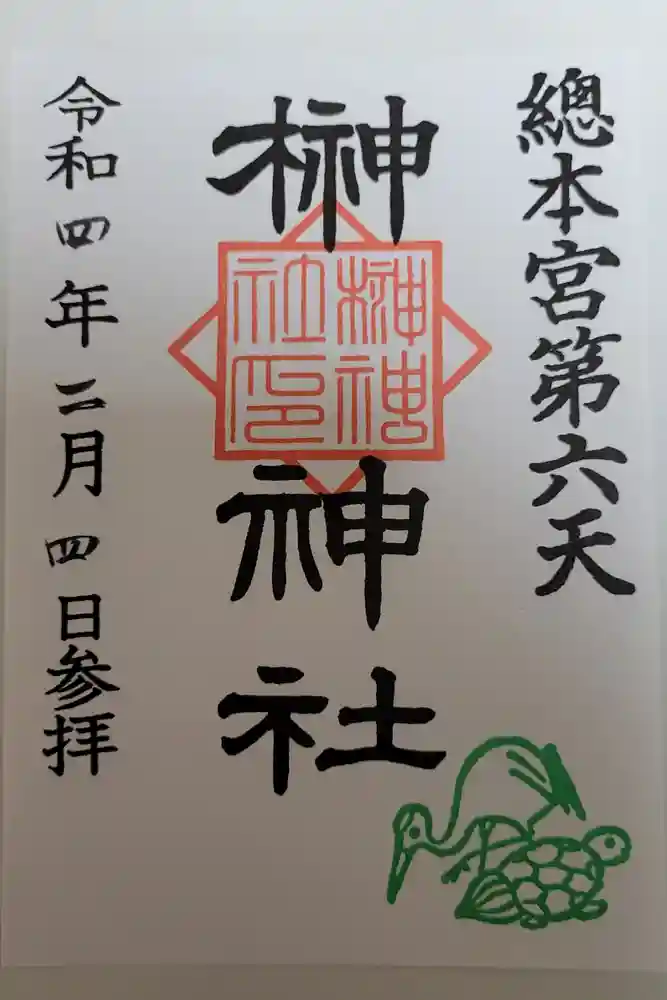 總本宮第六天
榊神社
榊神
社印
令和四年二月四日参拝